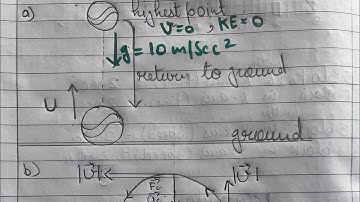 a) highest point
v=0, KE=0
g = 10 m/sec²
return to ground
u
ground
b) |v⃗|
|v⃗|